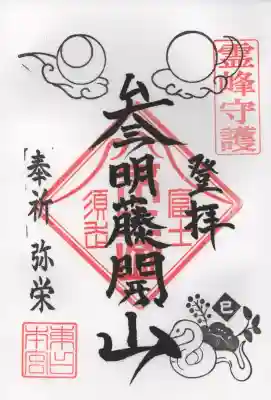 霊峰守護
登拝
参明藤開山
奉祈 弥栄
富士
須走
東口
本宮
巳